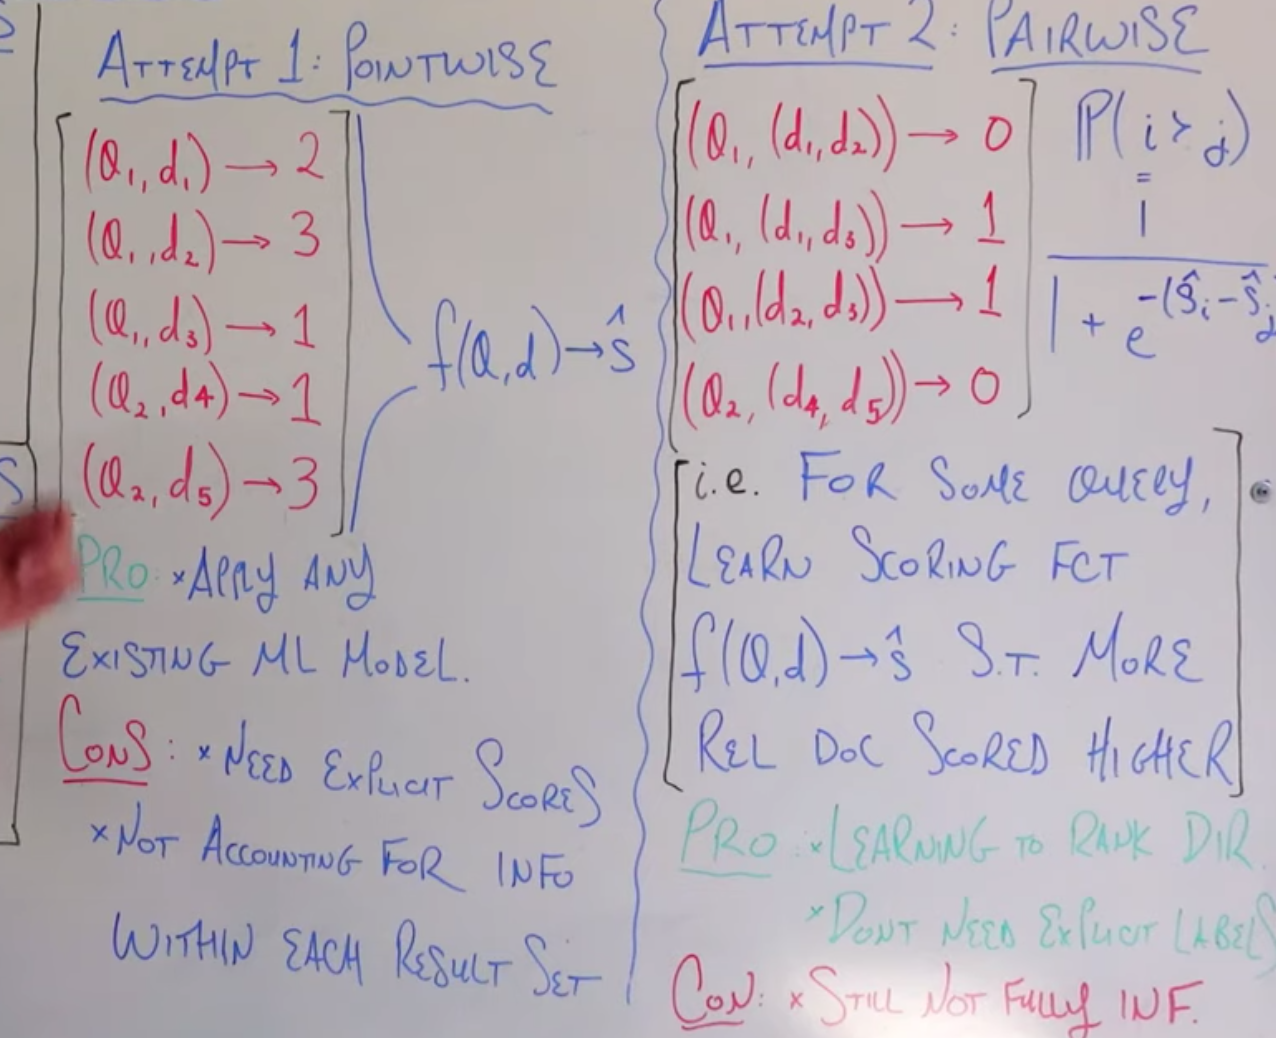 ATTEMPT 1: POINTWISE
(Q₁, d₁) → 2
(Q₁, d₂) → 3
(Q₁, d₃) → 1
(Q₂, d4) → 1
(Q₂, d₅) → 3
f(Q,d) → ŝ
PRO: ×APPLY ANY
EXISTING ML MODEL.
CONS: × NEED EXPLICIT SCORES
× NOT ACCOUNTING FOR INFO
WITHIN EACH RESULT SET
ATTEMPT 2: PAIRWISE
(Q₁, (d₁, d₂)) → 0
(Q₁, (d₁, d₃)) → 1
(Q₁, (d₂, d₃)) → 1
(Q₂, (d₄, d₅)) → 0
ℙ(i > j)
=
1
1 + e^-(ŝᵢ - ŝⱼ
i.e. FOR SOME QUERY,
LEARN SCORING FCT
f(Q,d) → ŝ S.T. MORE
REL DOC SCORED HIGHER
PRO: × LEARNING TO RANK DIR.
× DONT NEED EXPLICIT LABELS
CON: × STILL NOT FULLY INF.